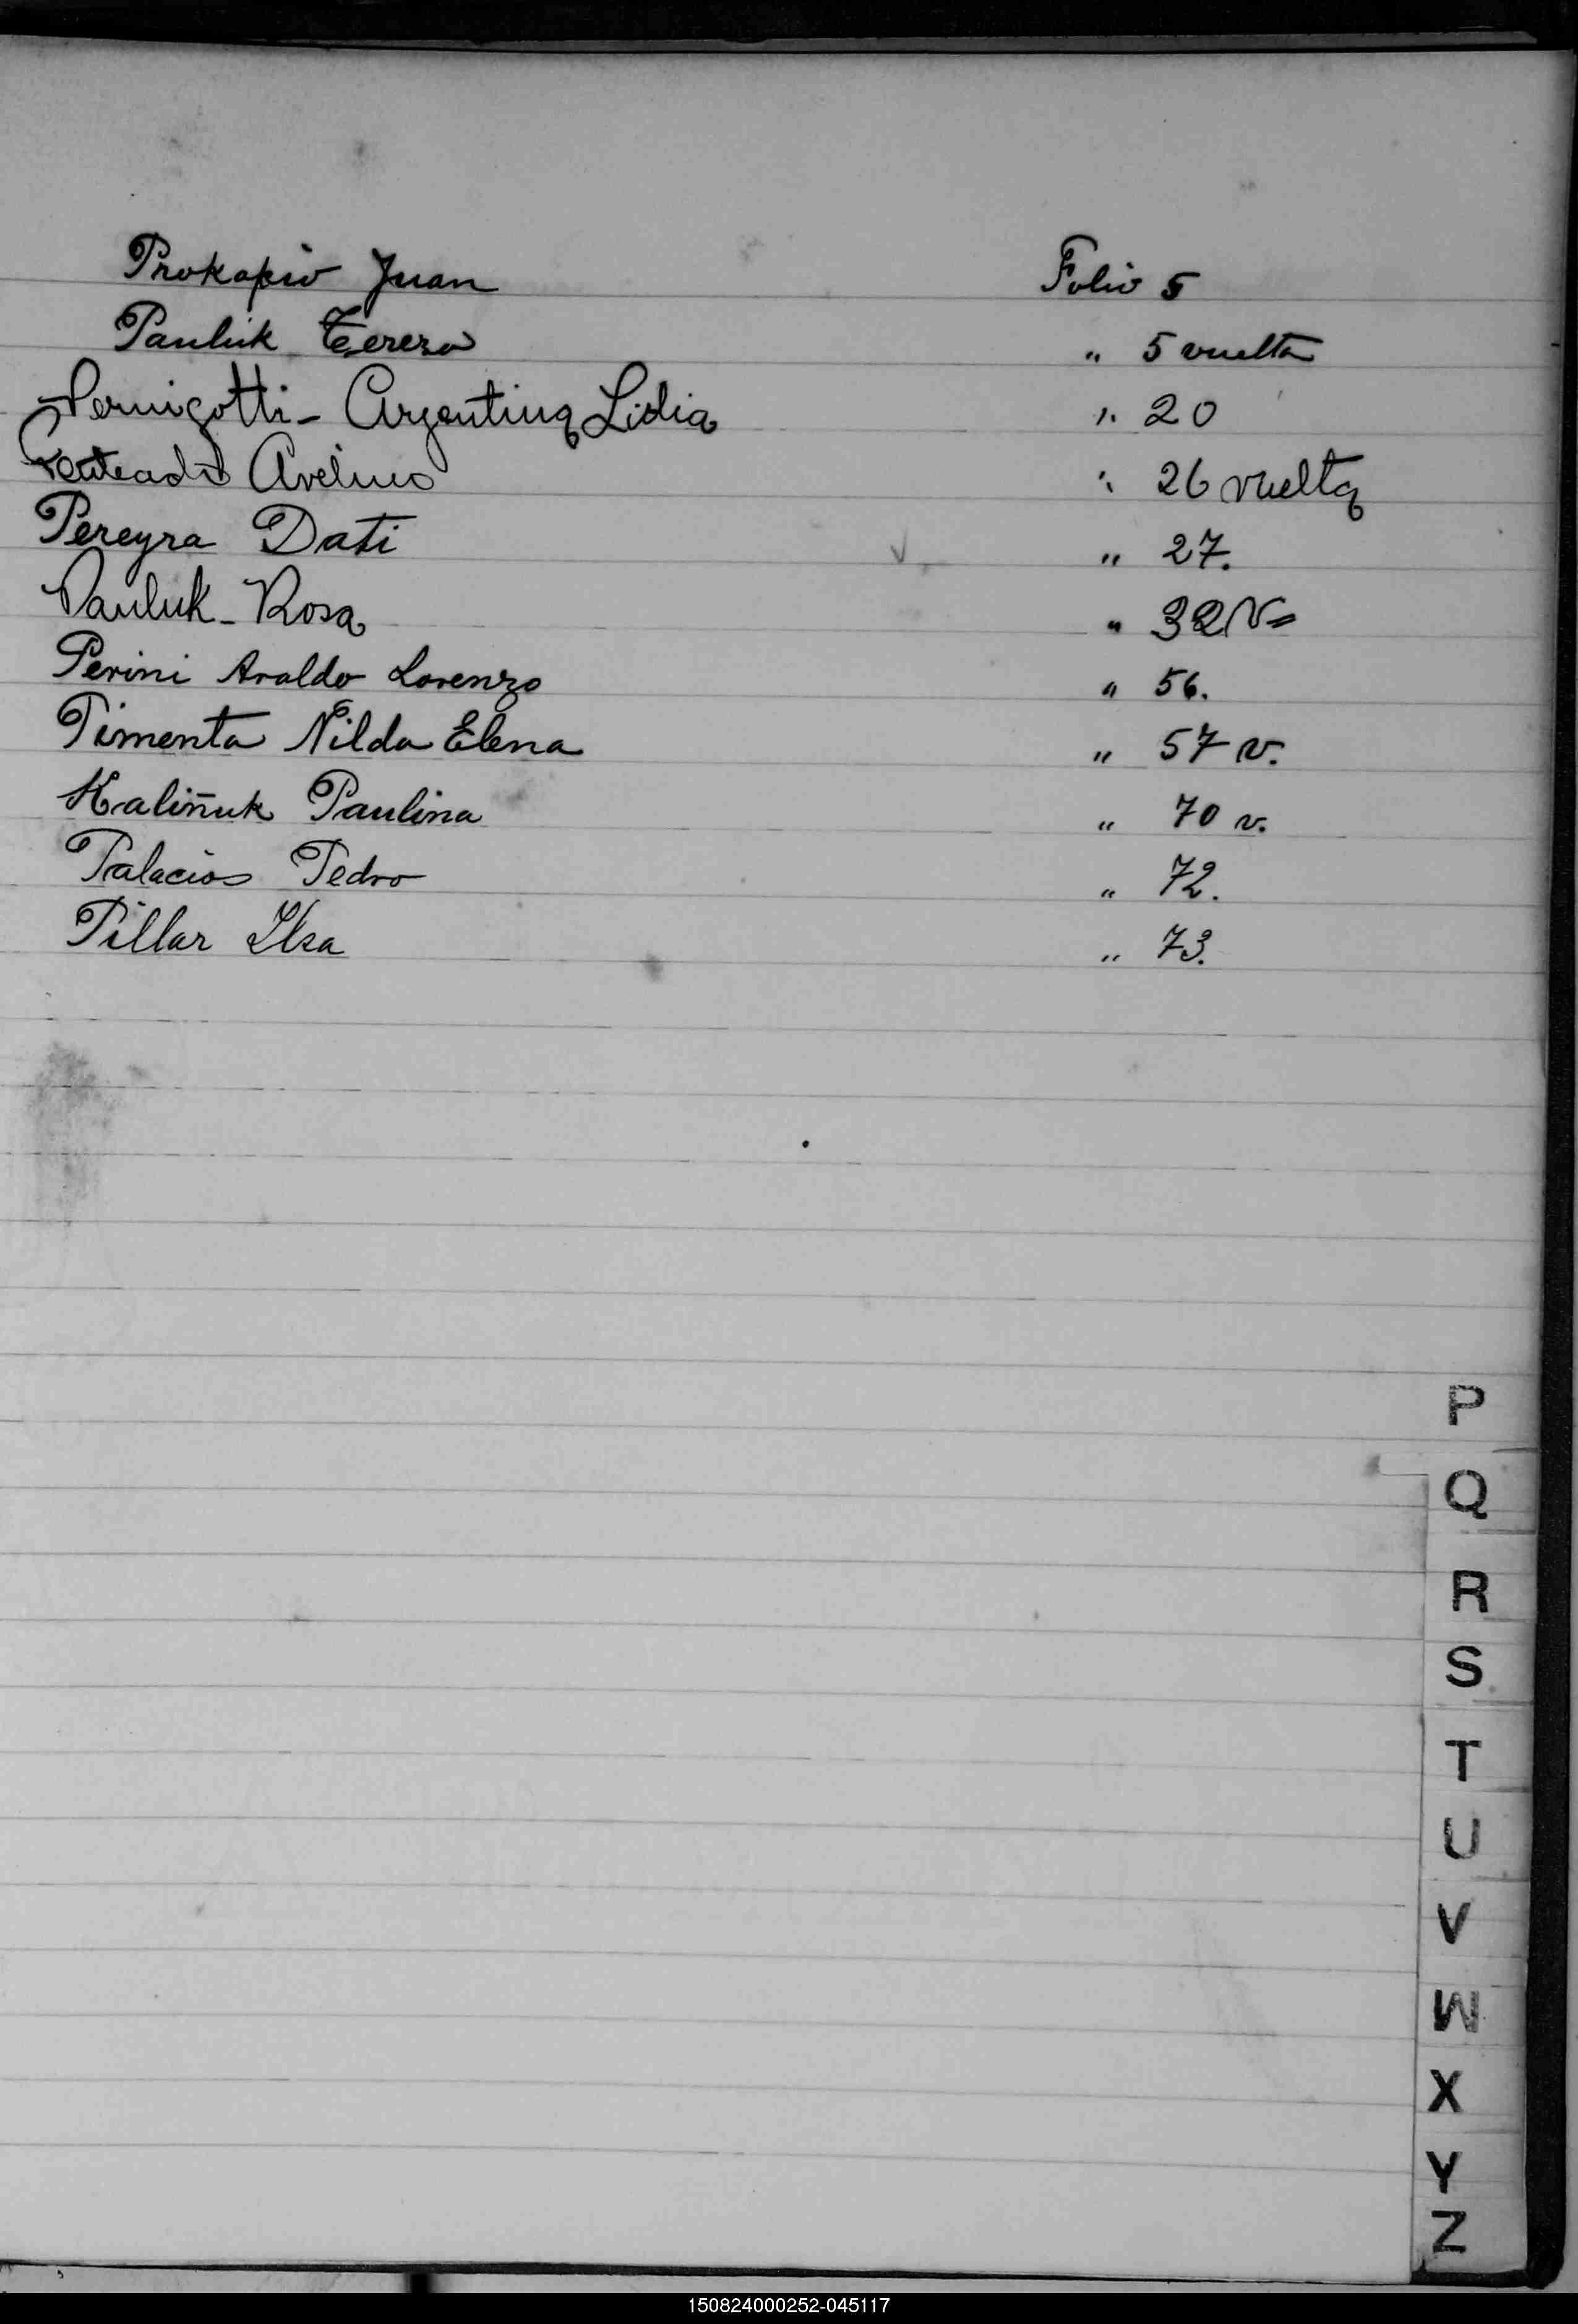 Prokopio Juan Folio 5
Pauluk Teresa " 5 vuelta
Pernigotti - Argentina Lidia " 20
Penteado Avelino " 26 vuelta
Pereyra Dati " 27.
Pauluk - Rosa " 32 V=
Perini Araldo Lorenzo " 56.
Pimenta Nilda Elena " 57 v.
Kaliñuk Paulina " 70 v.
Palacios Pedro " 72.
Pillar Ilsa " 73.
P
Q
R
S
T
U
V
W
X
Y
Z
150824000252-045117